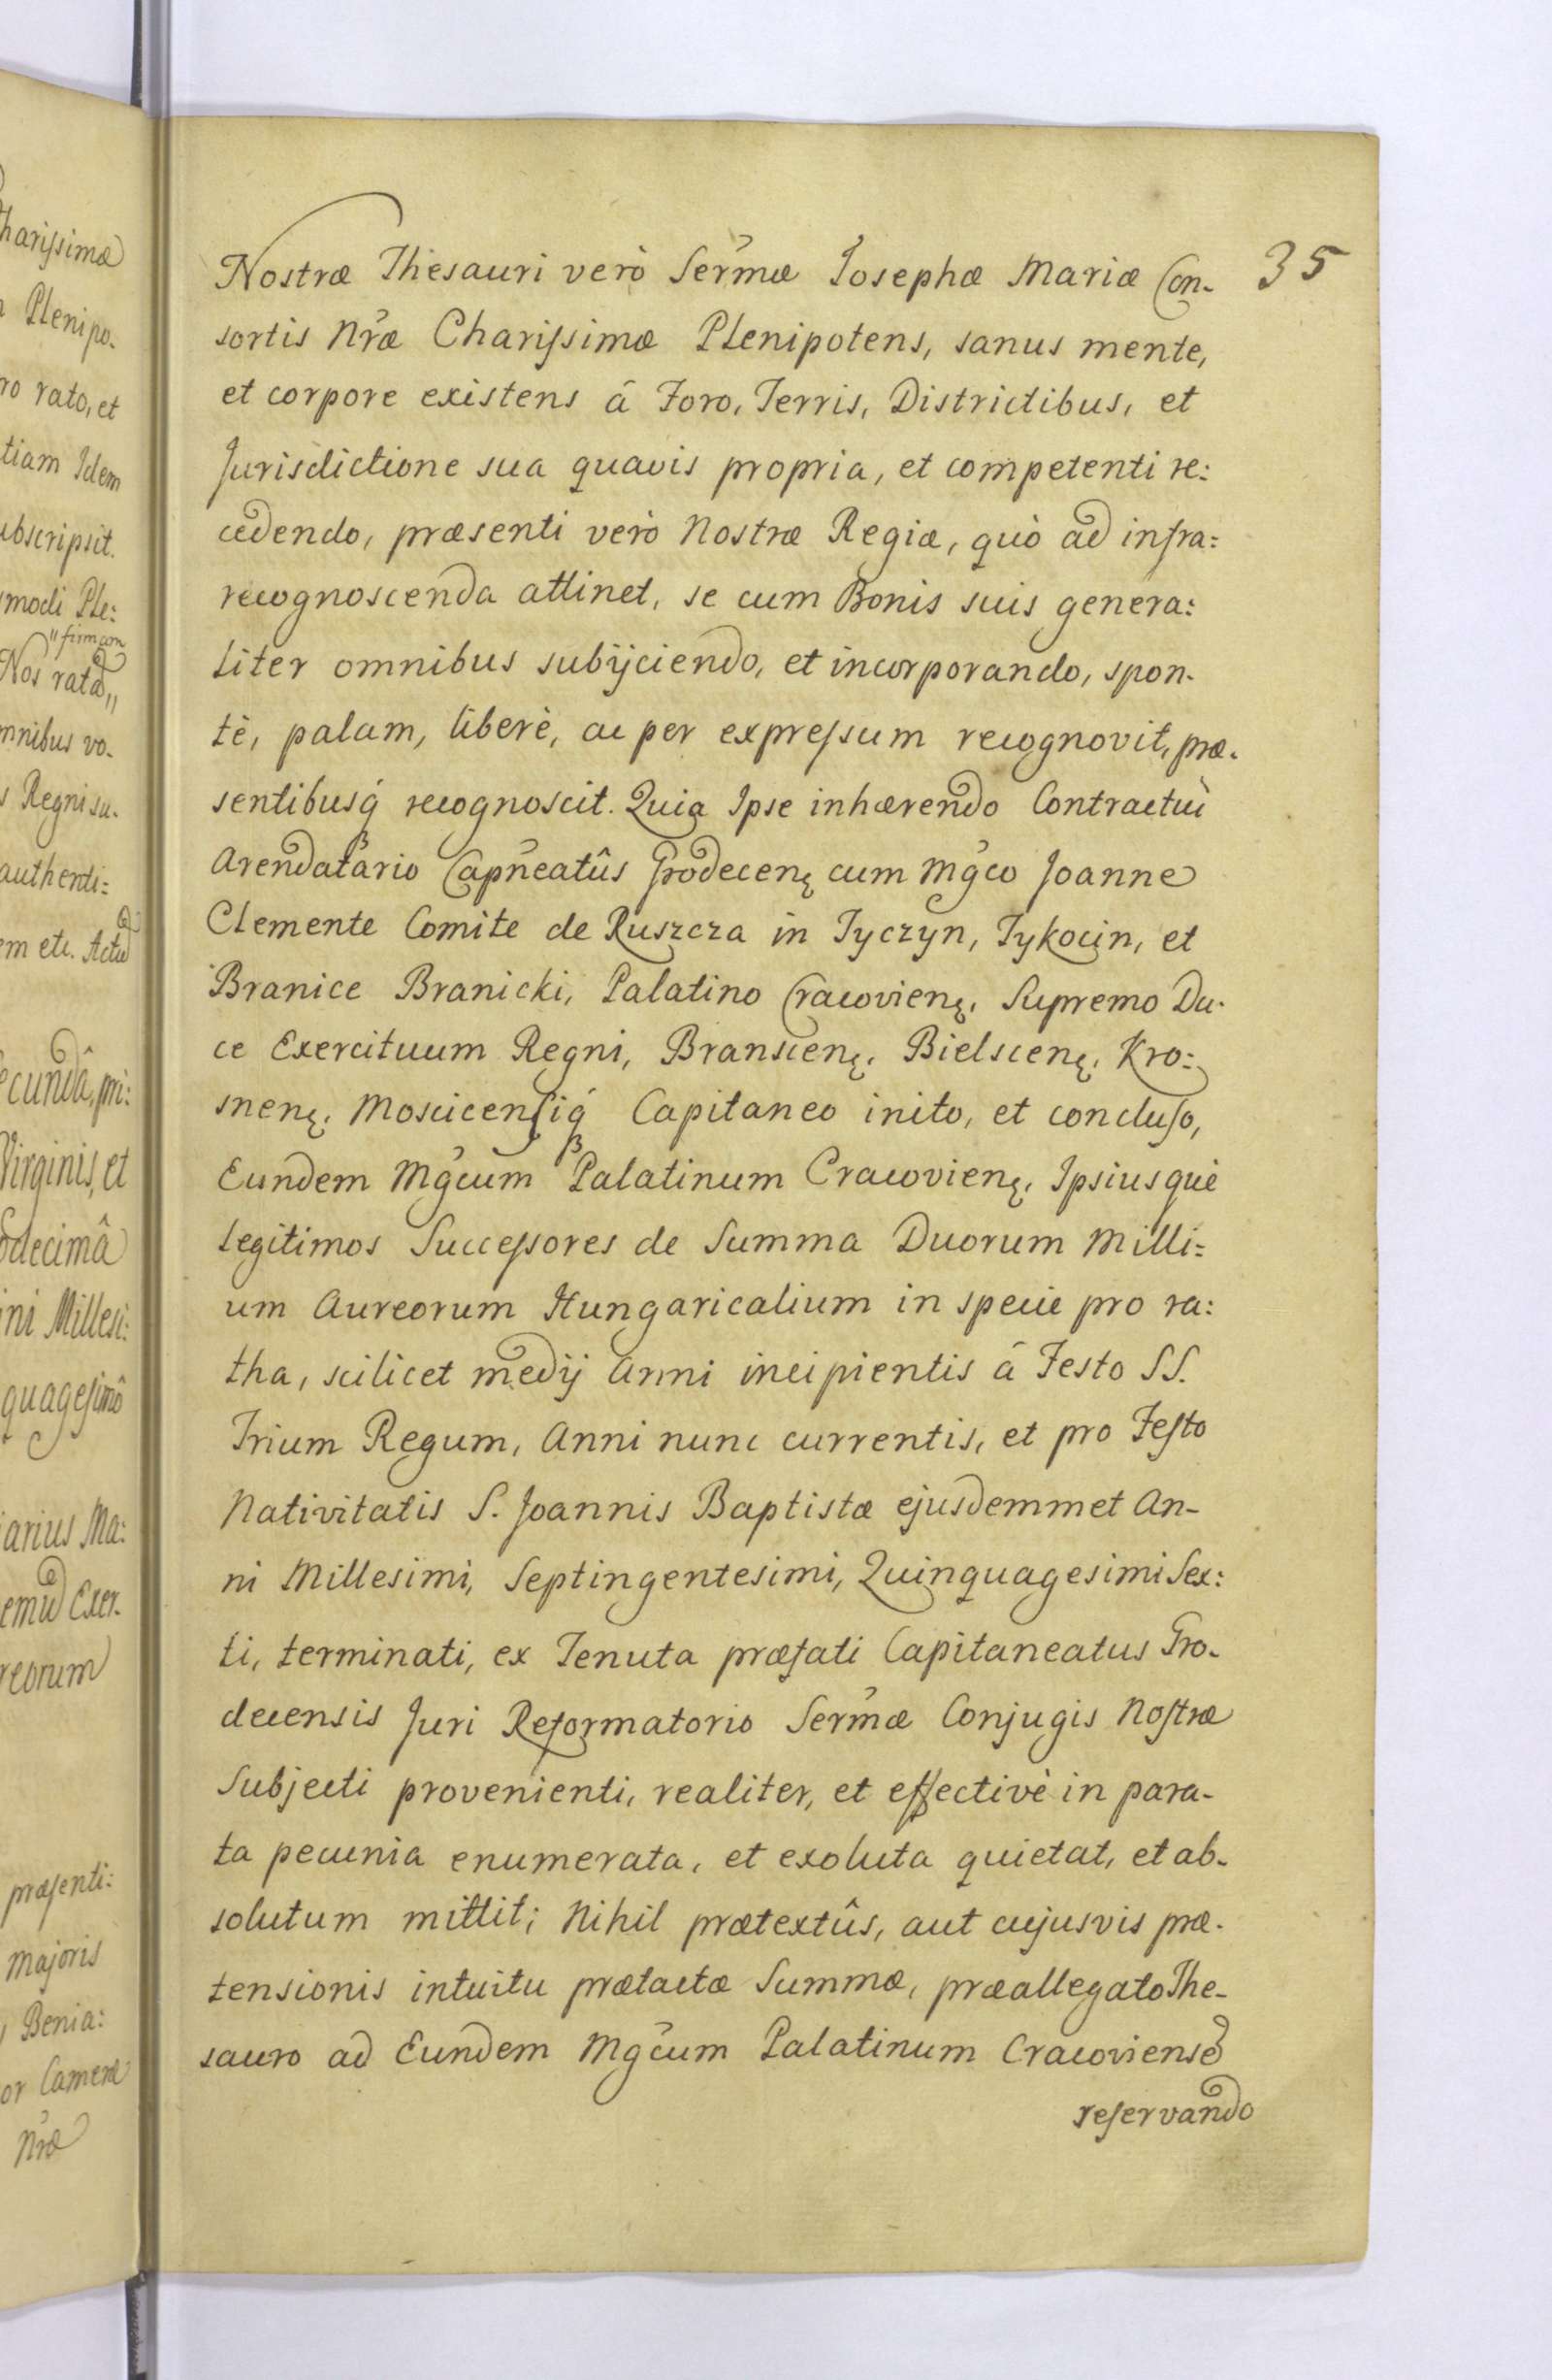 35
Nostræ Thesauri verò Serm̃æ Josephæ Mariæ Con-
sortis Nr̃æ Charissimæ Plenipotens, sanus mente,
et corpore existens â Foro, Terris, Districtibus, et
Jurisdictione sua quavis propria, et competenti re:
cedendo, præsenti verò Nostræ Regiæ, quò ad infra:
recognoscenda attinet, se cum Bonis suis genera:
liter omnibus subijciendo, et incorporando, spon-
tè, palam, liberè, ac per expressum recognovit, præ-
sentibusq́ recognoscit. Quia Ipse inhærendo Contractui
Arendatario Capñeatûs Grodecenę cum Mg̃co Joanne
Clemente Comite de Ruszcza in Tyczyn, Tykocin, et
Branice Branicki, Palatino Cracovienę, Supremo Du-
ce Exercituum Regni, Branscenę, Bielscenę, Kro:
snenę, Moscicensiq́ Capitaneo inito, et concluso,
Eundem Mg̃cum Palatinum Cracovienę, Ipsiusquè
legitimos Successores de Summa Duorum Milli:
um Aureorum Hungaricalium in specie pro ra:
tha, scilicet medij Anni incipientis â Festo SS.
Trium Regum, Anni nunc currentis, et pro Festo
Nativitatis S. Joannis Baptistæ ejusdemmet An-
ni Millesimi, Septingentesimi, Quinquagesimi Sex:
ti, terminati, ex Tenuta præfati Capitaneatus Gro-
decensis Juri Reformatorio Serm̃æ Conjugis Nostræ
Subjecti provenienti, realiter, et effectivè in para-
ta pecunia enumerata, et exoluta quietat, et ab-
solutum mittit; Nihil prætextûs, aut cujusvis præ-
tensionis intuitu prætactæ Summæ, præallegato The-
sauro ad Eundem Mg̃cum Palatinum Cracoviensẽ
reservando